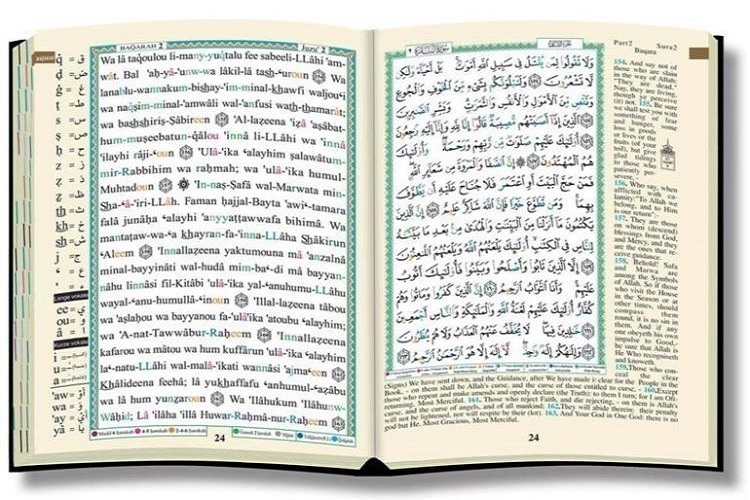 BAQARAH 2
Juzu' 2
Wa lâ taqoulou li-many-yuqtalu fee sabeeli-LLâhi 'am-
wât. Bal 'aḥ-yâ-'unw-wa lâkil-lâ tash-'uroun
Wa
lanablu-wannakum-bishay-'im-minal-khawfi waljou-'i
wa naqṣim-minal-'amwâli wal-'anfusi wath-thamarât;
wa bashshiriṣ-Ṣâbireen
'Al-lazeena 'izâ 'aṣâbat-
hum-museebatun-qâlou 'innâ li-LLâhi wa 'innâ
'ilayhi râji-'oun
'Ulâ-'ika 'alayhim ṣalawâtum-
mir-Rabbihim wa raḥmah; wa 'ulâ-'ika humul-
Muhtadoun
'In-naṣ-Ṣafâ wal-Marwata min-
Sha-'â-'iri-LLah. Faman ḥajjal-Bayta 'awi-'tamara
falâ junâḥa 'alayhi 'anyyaṭṭawwafa bihimâ. Wa
mantaṭaw-wa-'a khayran-fa-'inna-LLâha Shâkirun
'Aleem
'Innallazeena yaktumouna mâ 'anzalnâ
minal-bayyinâti wal-hudâ mim-ba'-di mâ bayyan-
nâhu linnâsi fil-Kitâbi 'ulâ-'ika yal-'anuhumu-LLâhu
wayal-'anu-humullâ-'inoun
'Illal-lazeena tâbou
wa 'aṣlaḥou wa bayyanou fa-'ulâ-'ika 'atoubu 'alayhim;
wa 'A-nat-Tawwâbur-Raḥeem
'Innallazeena
kafarou wa mâtou wa hum kuffârun 'ulâ-'ika 'alayhim
la'-natu-LLâhi wal-malâ-'ikati wannâsi 'ajma-'een
Khâlideena feehâ; lâ yukhaffafu 'anhumul-'azâbu
wa lâ hum yunẓaroun
Wa 'Ilâhukum 'Ilâhunw-
Wâḥid; Lâ 'ilâha 'illâ Huwar-Raḥmâ-nur-Raḥeem
24
Part2 Sura2
Baqara
وَلَا تَقُولُوا لِمَنْ يُقْتَلُ فِي سَبِيلِ اللَّهِ أَمْوَاتٌ بَلْ أَحْيَاءٌ وَلَكِنْ
لَا تَشْعُرُونَ وَلَنَبْلُوَنَّكُمْ بِشَيْءٍ مِنَ الْخَوْفِ وَالْجُوعِ
وَنَقْصٍ مِنَ الْأَمْوَالِ وَالْأَنْفُسِ وَالثَّمَرَاتِ وَبَشِّرِ الصَّابِرِينَ
الَّذِينَ إِذَا أَصَابَتْهُمْ مُصِيبَةٌ قَالُوا إِنَّا لِلَّهِ وَإِنَّا إِلَيْهِ رَاجِعُونَ
أُولَئِكَ عَلَيْهِمْ صَلَوَاتٌ مِنْ رَبِّهِمْ وَرَحْمَةٌ وَأُولَئِكَ
هُمُ الْمُهْتَدُونَ إِنَّ الصَّفَا وَالْمَرْوَةَ مِنْ شَعَائِرِ اللَّهِ
فَمَنْ حَجَّ الْبَيْتَ أَوِ اعْتَمَرَ فَلَا جُنَاحَ عَلَيْهِ أَنْ يَطَّوَّفَ
بِهِمَا وَمَنْ تَطَوَّعَ خَيْرًا فَإِنَّ اللَّهَ شَاكِرٌ عَلِيمٌ إِنَّ الَّذِينَ
يَكْتُمُونَ مَا أَنْزَلْنَا مِنَ الْبَيِّنَاتِ وَالْهُدَى مِنْ بَعْدِ مَا بَيَّنَّاهُ
لِلنَّاسِ فِي الْكِتَابِ أُولَئِكَ يَلْعَنُهُمُ اللَّهُ وَيَلْعَنُهُمُ اللَّاعِنُونَ
إِلَّا الَّذِينَ تَابُوا وَأَصْلَحُوا وَبَيَّنُوا فَأُولَئِكَ أَتُوبُ
عَلَيْهِمْ وَأَنَا التَّوَّابُ الرَّحِيمُ إِنَّ الَّذِينَ كَفَرُوا وَمَاتُوا وَهُمْ
كُفَّارٌ أُولَئِكَ عَلَيْهِمْ لَعْنَةُ اللَّهِ وَالْمَلَائِكَةِ وَالنَّاسِ أَجْمَعِينَ
خَالِدِينَ فِيهَا لَا يُخَفَّفُ عَنْهُمُ الْعَذَابُ وَلَا هُمْ يُنْظَرُونَ
وَإِلَهُكُمْ إِلَهٌ وَاحِدٌ لَا إِلَهَ إِلَّا هُوَ الرَّحْمَنُ الرَّحِيمُ
154. And say not of
those who are slain
in the way of Allah:
"They are dead."
Nay, they are living,
though ye perceive
(it) not. 155. Be sure
we shall test you with
something of fear
and hunger, some
loss in goods
or lives or the
fruits (of your
toil), but give
glad tidings
to those who
patiently per-
severe, -
156. Who say, when
afflicted with ca-
lamity:"To Allah we
belong, and to Him
is our return":-
157. They are those
on whom (descend)
blessings from God,
and Mercy, and they
are the ones that re-
ceive guidance.
158. Behold! Safa
and Marwa are
among the Symbols
of Allah. So if those
who visit the House
in the Season or at
other times, should
compass them
round, it is no sin in
them. And if any
one obeyeth his own
impulse to Good,-
be sure that Allah is
He Who recogniseth
and knoweth.
159.Those who con-
ceal the clear
(Signs) We have sent down, and the Guidance, after We have made it clear for the People in the
Book, - on them shall be Allah's curse, and the curse of those entitled to curse, - 160.Except
those who repent and make amends and openly declare (the Truth): to them I turn; for I am Oft-
returning, Most Merciful. 161. Those who reject Faith, and die rejecting, - on them is Allah's
curse, and the curse of angels, and of all mankind; 162.They will abide therein: their penalty
will not be lightened, nor will respite be their (lot). 163. And Your God in One God: there is no
god but He, Most Gracious, Most Merciful.
24